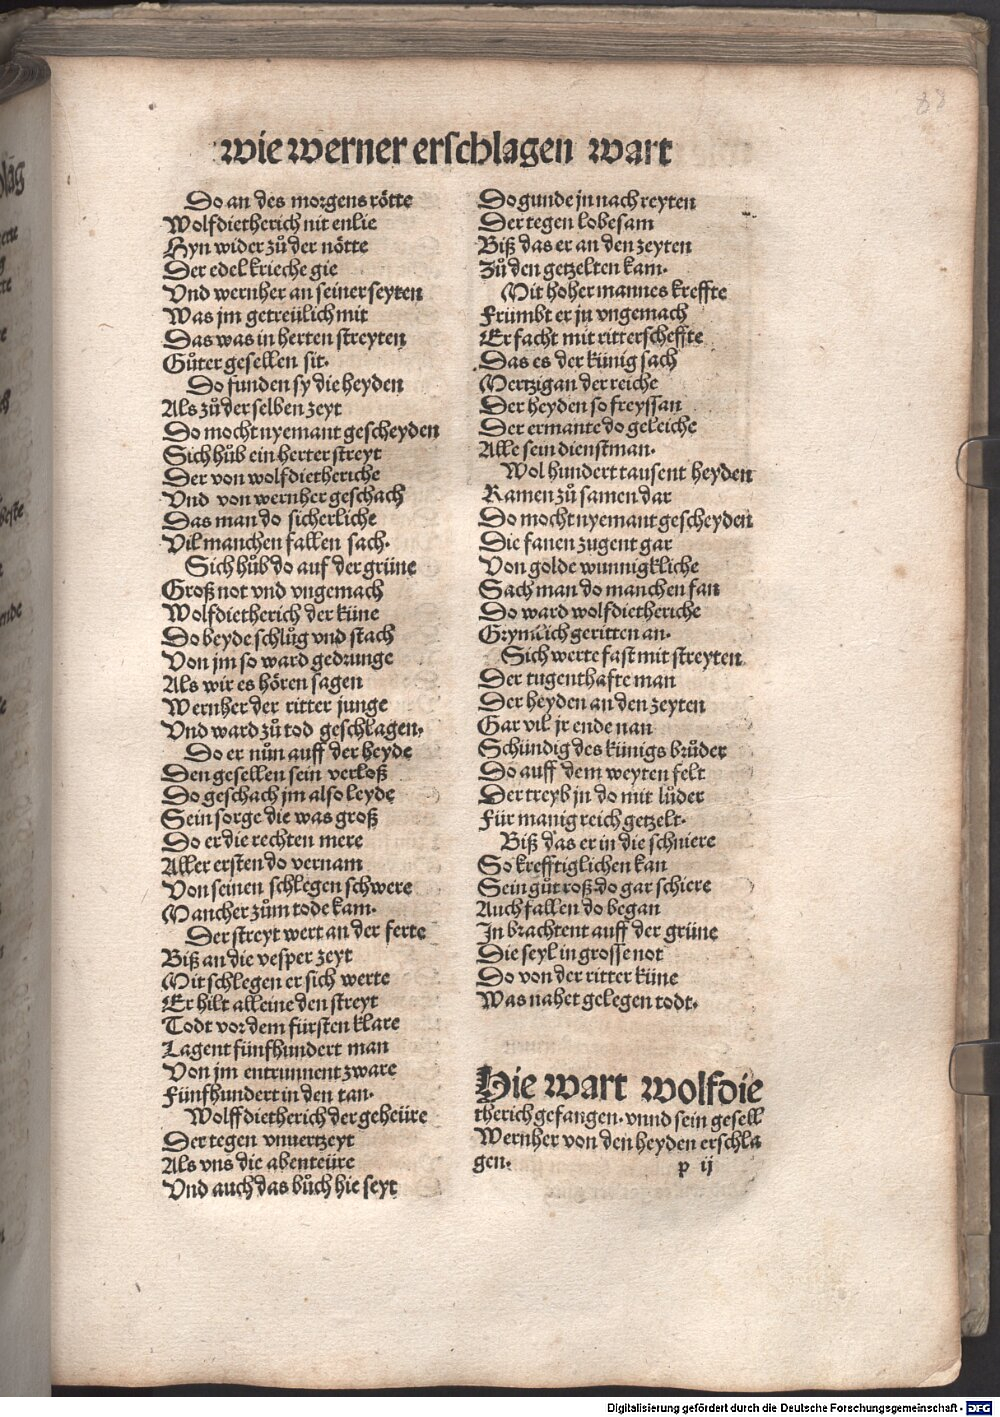 88
wie werner erschlagen wart
Do an des morgens rötte
Wolfdietherich nit enlie
Hyn wider zů der nötte
Der edel krieche gie
Vnd wernher an seiner seyten
Was jm getreülich mit
Das was in herten streyten
Gůter gesellen sit.
Do funden sy die heyden
Als zů der selben zeyt
Do mocht nyemant gescheyden
Sich hůb ein herter streyt
Der von wolfdietheriche
Vnd von wernher geschach
Das man do sicherliche
Vil manchen fallen sach.
Sich hůb do auf der grüne
Groß not vnd vngemach
Wolfdietherich der küne
Do beyde schlůg vnd stach
Von jm so ward gedrunge
Als wir es hören sagen
Wernher der ritter junge
Vnd ward zů tod geschlagen.
Do er nůn auff der heyde
Den gesellen sein verloß
Do geschach jm also leyde
Sein sorge die was groß
Do er die rechten mere
Aller ersten do vernam
Von seinen schlegen schwere
Mancher zům tode kam.
Der streyt wert an der ferte
Biß an die vesper zeyt
Mit schlegen er sich werte
Er hilt alleine den streyt
Todt vor dem fürsten klare
Lagent fünfhundert man
Von jm entrunnent zware
Fünfhundert in den tan.
Wolffdietherich der geheüre
Der tegen vnuertzeyt
Als vns die abenteüre
Vnd auch das bůch hie seyt
Do gunde jn nach reyten
Der tegen lobesam
Biß das er an den zeyten
Zů den getzelten kam.
Mit hoher mannes kreffte
Frümbt er ju vngemach
Er facht mit ritterscheffte
Das es der künig sach
Mertzigan der reiche
Der heyden so freyssan
Der ermante do geleiche
Alle sein dienstman.
Wol hundert tausent heyden
Kamen zů samen dar
Do mocht nyemant gescheyden
Die fanen zugent gar
Von golde wunnigkliche
Sach man do manchen fan
Do ward wolfdietheriche
Grymlich geritten an.
Sich werte fast mit streyten
Der tugenthafte man
Der heyden an den zeyten
Gar vil jr ende nan
Schündig des künigs brůder
Do auff dem weyten felt
Der treyb jn do mit lůder
Für manig reich getzelt.
Biß das er in die schniere
So krefftiglichen kan
Sein gůt roß do gar schiere
Auch fallen do began
In brachtent auff der grüne
Die seyl in grosse not
Do von der ritter küne
Was nahet gelegen todt.
Hie wart wolfdie
therich gefangen. vnnd sein gesell
Wernher von den heyden erschla
gen.
p ij
Digitalisierung gefördert durch die Deutsche Forschungsgemeinschaft - DFG